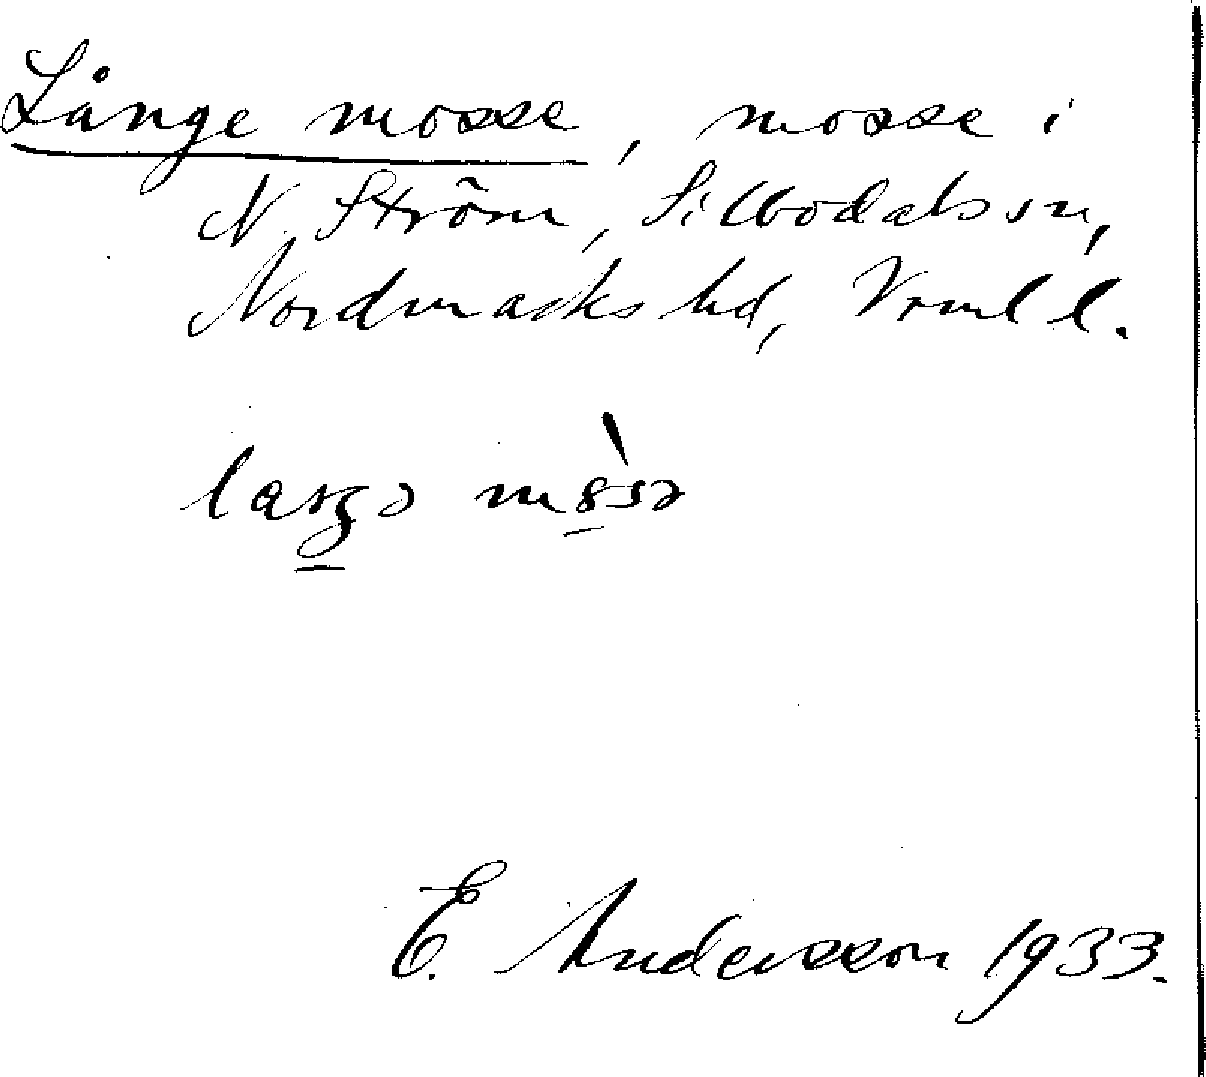 Långe mosse, mosse i
N. Ström, Silbodals sn,
Nordmarks hd, Vrml l.
E. Andersson 1933.